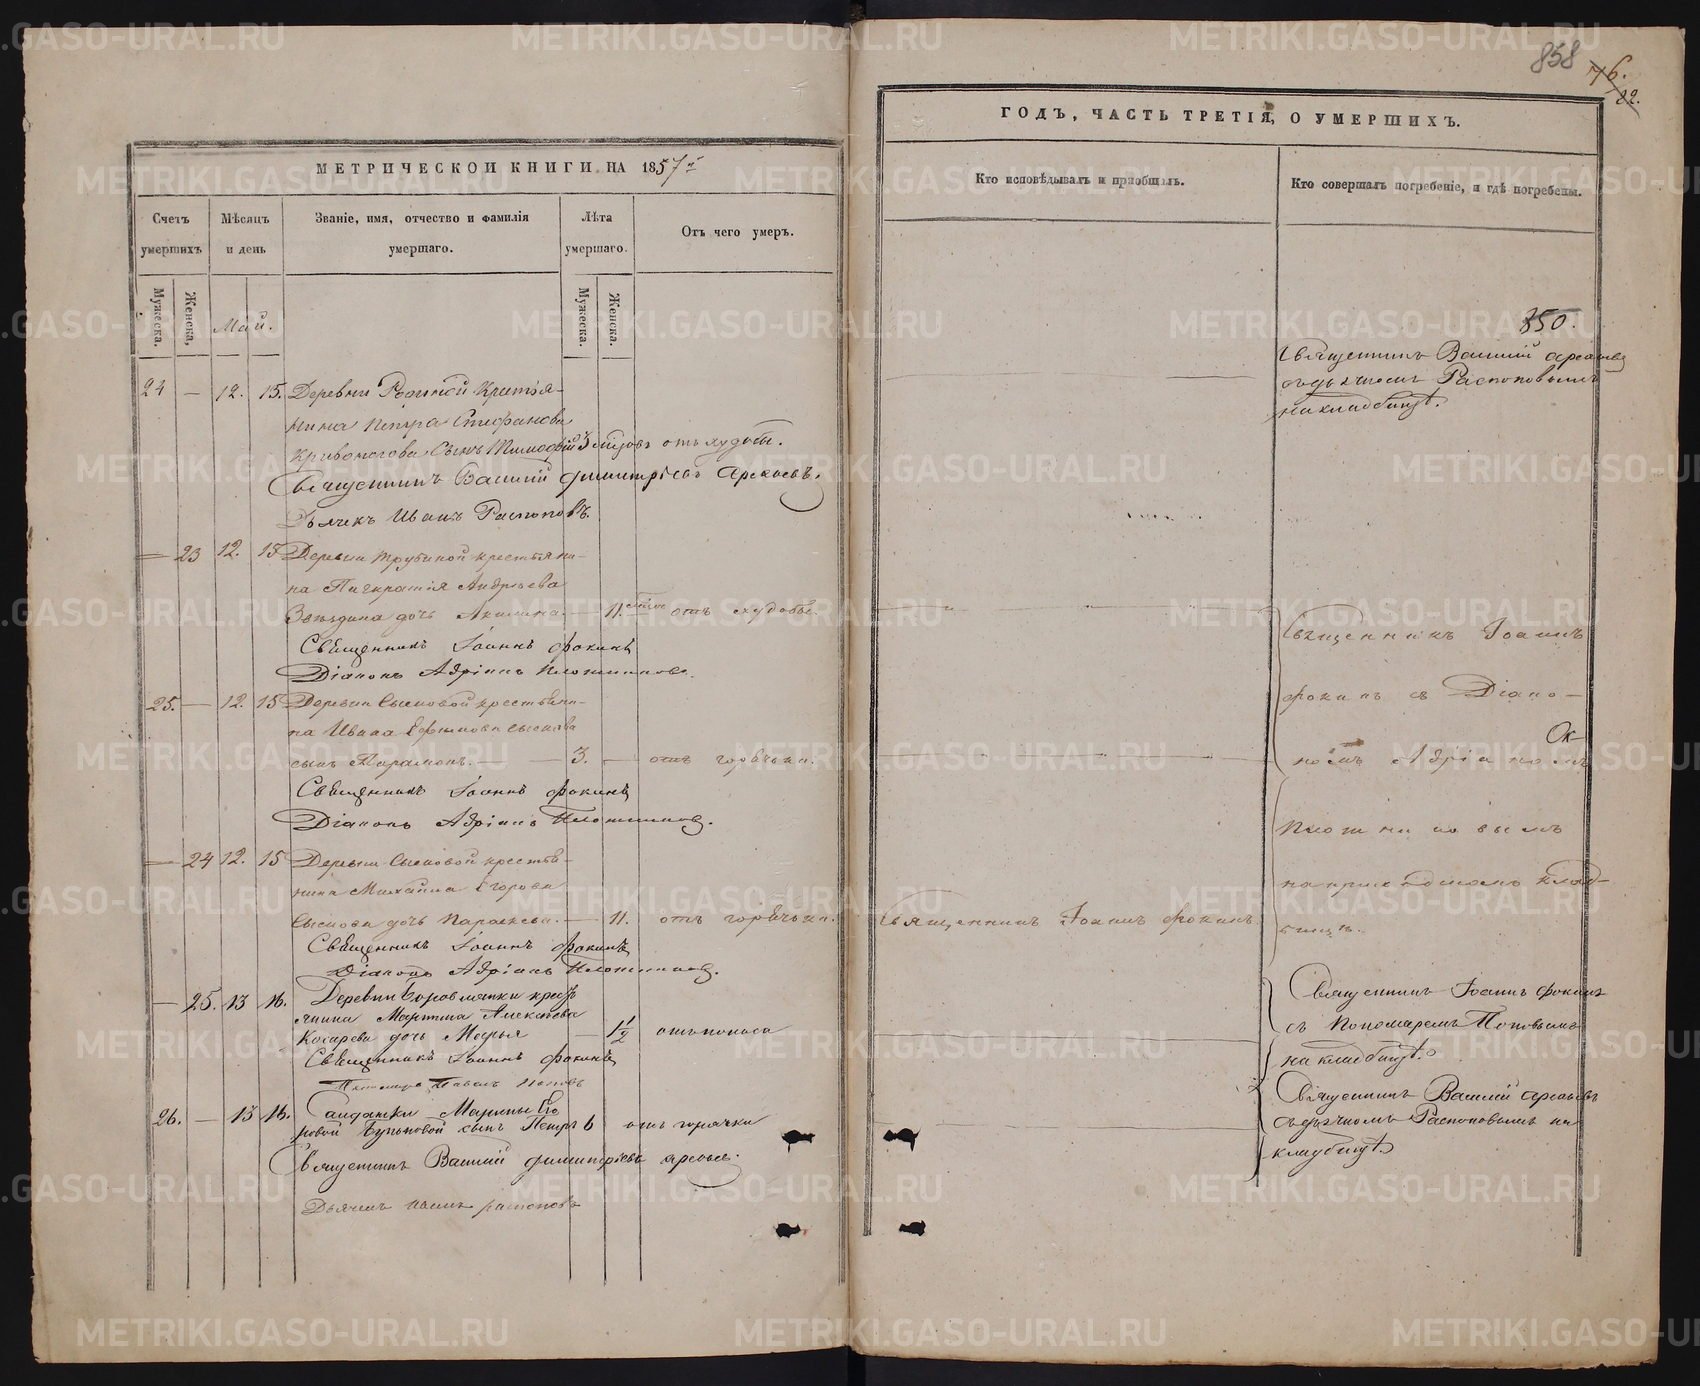 858
76.
82.
МЕТРИЧЕСКОЙ КНИГИ НА 1857й
ГОДЪ, ЧАСТЬ ТРЕТІЯ, О УМЕРШИХЪ.
Счетъ умершихъ
Мѣсяцъ и день
Званіе, имя, отчество и фамилія умершаго.
Лѣта умершаго.
Отъ чего умеръ.
Кто исповѣдывалъ и пріобщалъ.
Кто совершалъ погребеніе, и гдѣ погребены.
Мужеска.
Женска,
Май.
Мужеска.
Женска.
850.
24 — 12. 15. Деревни крестья-
нина Петра Стефанова
Кривоногова сынъ Тимофей 3 отъ худобы.
Священникъ Василій Димитріевъ
Дьячекъ Иванъ Распоповъ
Священникъ Василій
съ дьячкомъ Распоповымъ
на кладбищѣ.
— 23 12. 15 Деревни Трубиной крестьяни-
на Панкратія Андреева
дочь Акилина — 11. отъ худобы.
Священникъ Іоаннъ Фокинъ
Діаконъ Адріанъ Плотниковъ.
25. — 12. 15 Деревни Сысковой крестьяни-
на Ивана Ефимова Сыскова
сынъ Парамонъ. — 3. — отъ горячки.
Священникъ Іоаннъ Фокинъ
Діаконъ Адріанъ Плотниковъ.
— 24 12. 15 Деревни Сысковой крестья-
нина Михаила Егорова
Сыскова дочь Параскева. — 11. отъ горячки.
Священникъ Іоаннъ Фокинъ
Священникъ Іоаннъ Фокинъ
Діаконъ Адріанъ Плотниковъ.
Священникъ Іоаннъ
Фокинъ съ Діако-
Ок
номъ Адріаномъ
Плотниковымъ
на приходскомъ клад-
бищѣ.
— 25. 13 16. Деревни Боровлянки крест
янина Мартина Алексѣева
Кокарева дочь Марья — 1½ отъ поноса
Священникъ Іоаннъ Фокинъ
Пономарь Павелъ Поповъ
Священникъ Іоаннъ Фокинъ
съ Пономаремъ Поповымъ
на кладбищѣ.
26. — 13 16. Солдатки Марины Его
ровой сынъ Петръ 6 отъ горячки
Священникъ Василій Димитріевъ
Дьячекъ Иванъ Распоповъ
Священникъ Василій
съ дьячкомъ Распоповымъ на
кладбищѣ.
METRIKI.GASO-URAL.RU